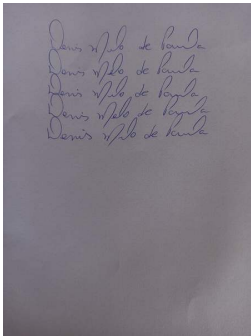 Denis Melo de Paula
Denis Melo de Paula
Denis Melo de Paula
Denis Melo de Paula
Denis Melo de Paula